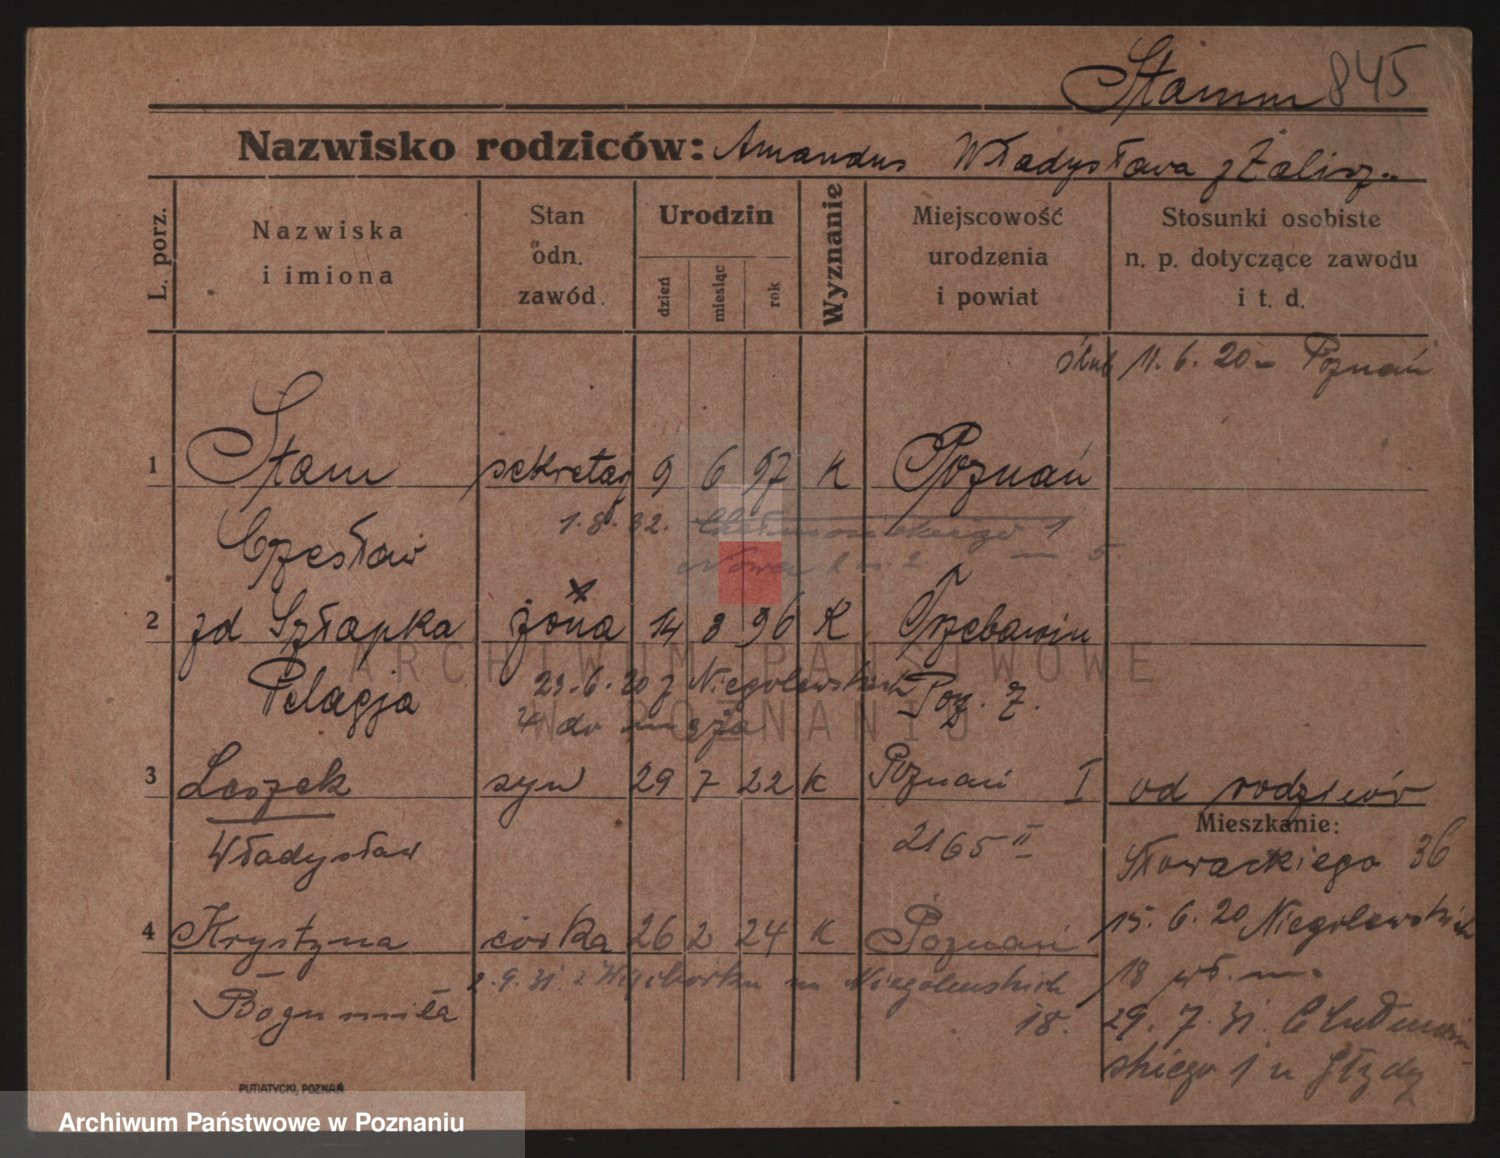 Stamm 845
Nazwisko rodziców: Amandus Władysława z Żalisz..
L. porz.
Nazwiska
i imiona
Stan
odn.
zawód.
Urodzin
dzień
miesiąc
rok
Wyznanie
Miejscowość
urodzenia
i powiat
Stosunki osobiste
n. p. dotyczące zawodu
i t. d.
ślub 11. 6. 20 - Poznań
1 Stam sekretarz 9 6 97 K Poznań
1. 8. 32. Chełmońskiego 1
Czesław
Nowa
5
2 zd Szłapka żona 14 8 96 K Trzebawin
Pelagja 29. 6. 20 z Niegolewskich Poz. Z.
do męża
3 Leszek syn 29 7 22 K Poznań I od rodziców
Mieszkanie:
Władysław 2165 II
Słowackiego 36
4 Krystyna córka 26 2 24 K Poznań
15. 6. 20 Niegolewskich
18 wł. m.
2. 9. 31. z Więcborka na Niegolewskich
18.
Bogumiła
29. 7. 31. Chełmoń-
skiego 1 u
PUTIATYCKI, POZNAŃ
ARCHIWUM PAŃSTWOWE
W POZNANIU
Archiwum Państwowe w Poznaniu